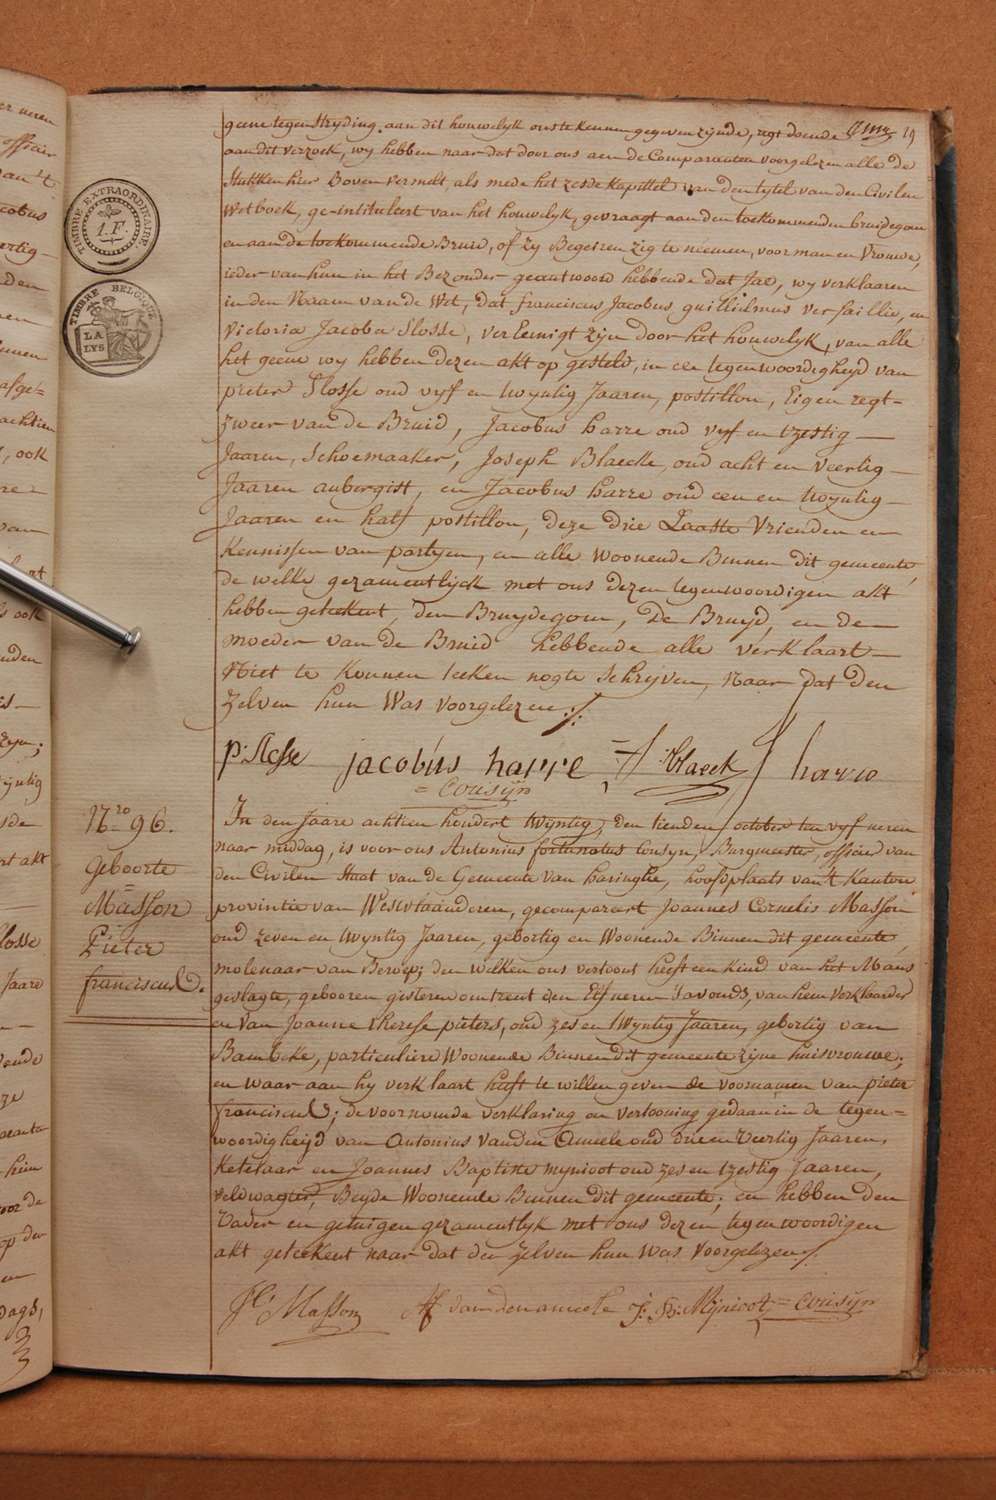 geene tegenstryding aan dit houwelyk ons te kennen gegeven zijnde, regt doende 19
aan dit verzoek, wy hebben naar dat door ons aen de Comparanten voorgelezen alle de
stukken hier Boven vermelt, als mede het zesde kapittel van den tytel van den Civilen
Wetboek, ge-intituleert van het houwelyk, gevraagt aan den toekommenden bruidegom
en aan de toekommende Bruid, of zy Begeiren zig te niemen, voor man en Vrouwe,
ieder van hun in het Bezonder geantwoord hebbende dat Jae, wy verklaaren
in den Naam van de Wet, dat franciscus Jacobus guillielmus versaillie, en
Victoria Jacoba Slosse, vereenigt zyn door het houwelyk, van alle
het geene wy hebben dezen akt op gesteld, in de tegenwoordigheyd van
pieter Slosse oud vyf en twyntig Jaaren, postillon, Eigen regt-
zweer van de Bruid, Jacobus harre oud vyf en tzestig
Jaaren, Schoemaaker, Joseph Blaecke, oud acht en veertig
Jaaren aubergist, en Jacobus harre oud een en twyntig
Jaaren en half postillon, deze drie Laaste Vrienden en
Kennissen van partyen, en alle woonende Binnen dit gemeente,
de welke gezamentlijck met ons dezen tegenwoordigen akt
hebben geteekent, den Bruydegom, De Bruyd, en de
moeder van de Bruid hebbende alle verklaart
Niet te konnen teeken nogte Schrijven, Naar dat den
zelven hun Was voorgelezen
p. Slosse jacobus harre Blaeck harre
= cousijn
TIMBRE EXTRAORDINAIRE.
1.F.
TIMBRE BELGIQUE
LA LYS
Nro 96.
geboorte
=
Masson
Pieter
franciscus.
In den Jaare achtien hondert twyntig, den tienden october ten vyf ueren
naar middag, is voor ons Antonius fortunatus Cousyn, Burgmeester, officier van
den Civilen Staat van de Gemeente van haringhe, hoofdplaats van 't Kanton
provintie van Westvlaanderen, gecompareert Joannes Cornelis Masson
oud zeven en twyntig Jaaren, gebortig en Woonende Binnen dit gemeente,
molenaar van Beroep; den welken ons vertoont heeft een kind van het Mans
geslagte, gebooren gisteren omtrent den Elf ueren 's avonds, van hem Verklaarder
en van Joanne therese pieters, oud zes en twyntig Jaaren, gebortig van
Bambeke, particuliere Woonende Binnen dit gemeente zyne huisvrouwe;
en waar aan hy verklaart heeft te willen geven de voornamen van pieter
franciscus; de voornoemde verklaring en vertooning gedaan in de tegen=
woordigheijd van Antonius vanden Ameele oud drie en veertig Jaaren,
Ketelaar en Joannes Baptiste mynioot oud zes en tzestig Jaaren,
veldwagter, Beyde Woonende Binnen dit gemeente; en hebben den
Vader en getuigen gezamentlyk met ons dezen tegenwoordigen
akt geteekent naar dat de zelven hun Was voorgelezen
J C Masson AF vandenameele J: B: Mijnioot = cousijn